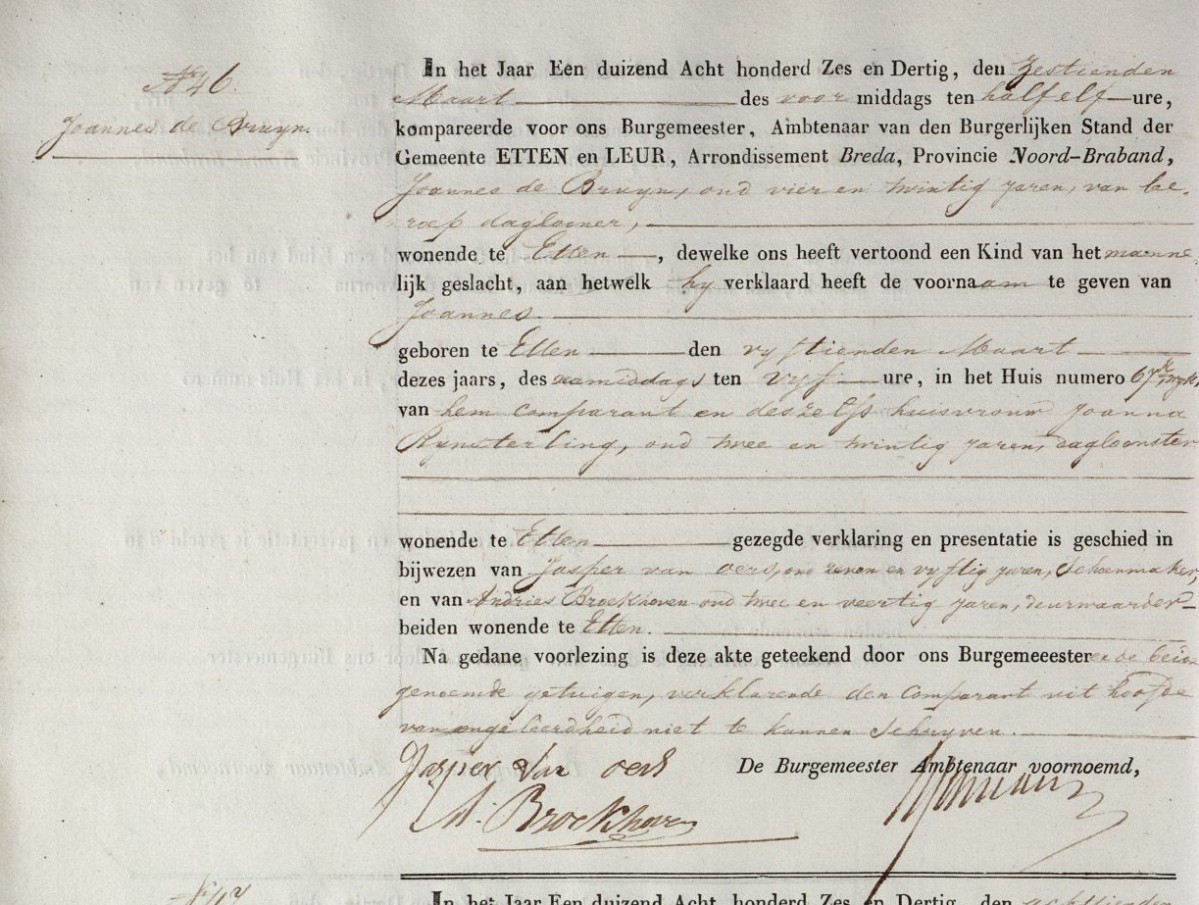 N 46.
Joannes de Bruyn.
In het Jaar Een duizend Acht honderd Zes en Dertig, den Zestienden
Maart des voor middags ten half elf ure,
kompareerde voor ons Burgemeester, Ambtenaar van den Burgerlijken Stand der
Gemeente ETTEN en LEUR, Arrondissement Breda, Provincie Noord-Braband,
Joannes de Bruyn, oud vier en twintig jaren, van be-
roep daglooner,
wonende te Etten, dewelke ons heeft vertoond een Kind van het manne
lijk geslacht, aan hetwelk hy verklaard heeft de voornaam te geven van
Joannes.
geboren te Etten den vyftienden Maart
dezes jaars, des namiddags ten vyf ure, in het Huis numero 67
van hem comparant en deszelfs huisvrouw Joanna
Rynsterling, oud twee en twintig jaren, dagloonster
wonende te Etten gezegde verklaring en presentatie is geschied in
bijwezen van Jasper van oers, oud zeven en vyftig jaren, Schoenmaker,
en van Andries Broekhoven oud twee en veertig jaren, deurwaarder
beiden wonende te Etten.
Na gedane voorlezing is deze akte geteekend door ons Burgemeeester en de beide
genoemde getuigen, verklarende den Comparant uit hoofde
van ongeleerdheid niet te kunnen Schryven.
Jasper Van oers De Burgemeester Ambtenaar voornoemd,
A. Broekhoven
N 47
In het Jaar Een duizend Acht honderd Zes en Dertig, den achttienden